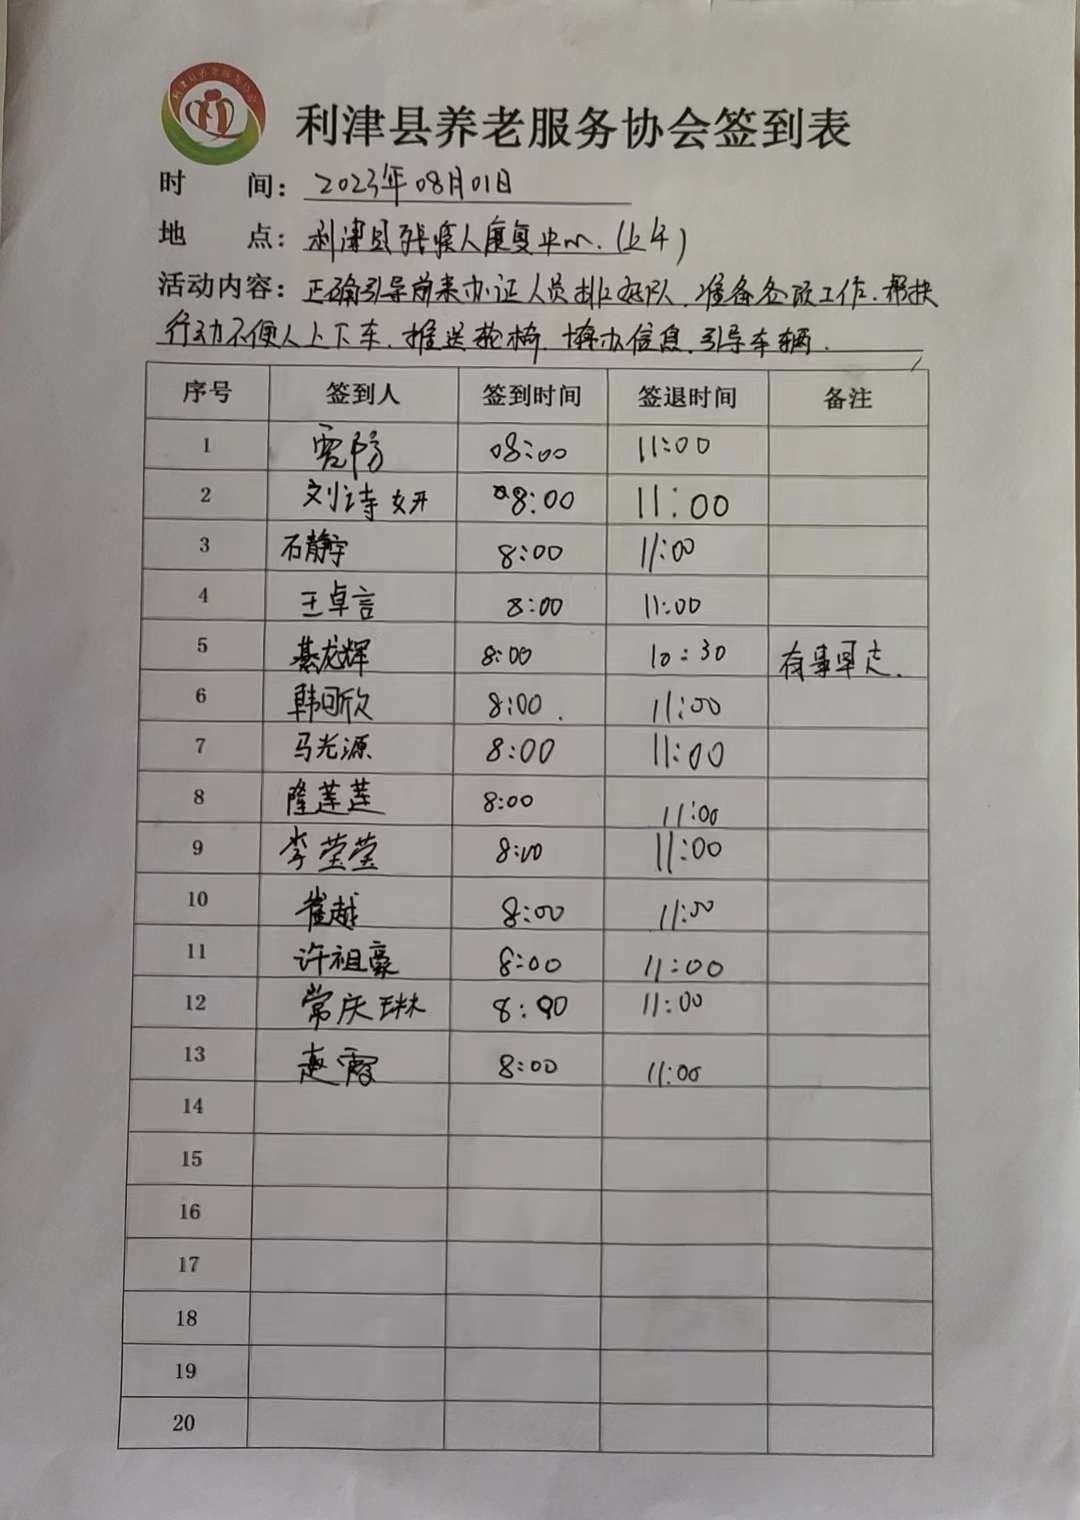 利津县养老服务协会签到表
时 间: 2023年08月01日
地 点: 利津县残疾人康复中心.(上午)
活动内容: 正确引导前来办证人员排好队.准备签到工作.帮扶
行动不便人上下车.推送轮椅.填办信息.引导车辆.
序号 签到人 签到时间 签退时间 备注
1 08:00 11:00
2 刘诗妍 08:00 11:00
3 石静宇 8:00 11:00
4 王卓言 8:00 11:00
5 綦龙辉 8:00 10:30 有事早走.
6 韩欣 8:00 11:00
7 马光源 8:00 11:00
8 隆莲莲 8:00 11:00
9 李莹莹 8:00 11:00
10 崔越 8:00 11:00
11 许祖豪 8:00 11:00
12 常庆琳 8:00 11:00
13 赵霞 8:00 11:00
14
15
16
17
18
19
20